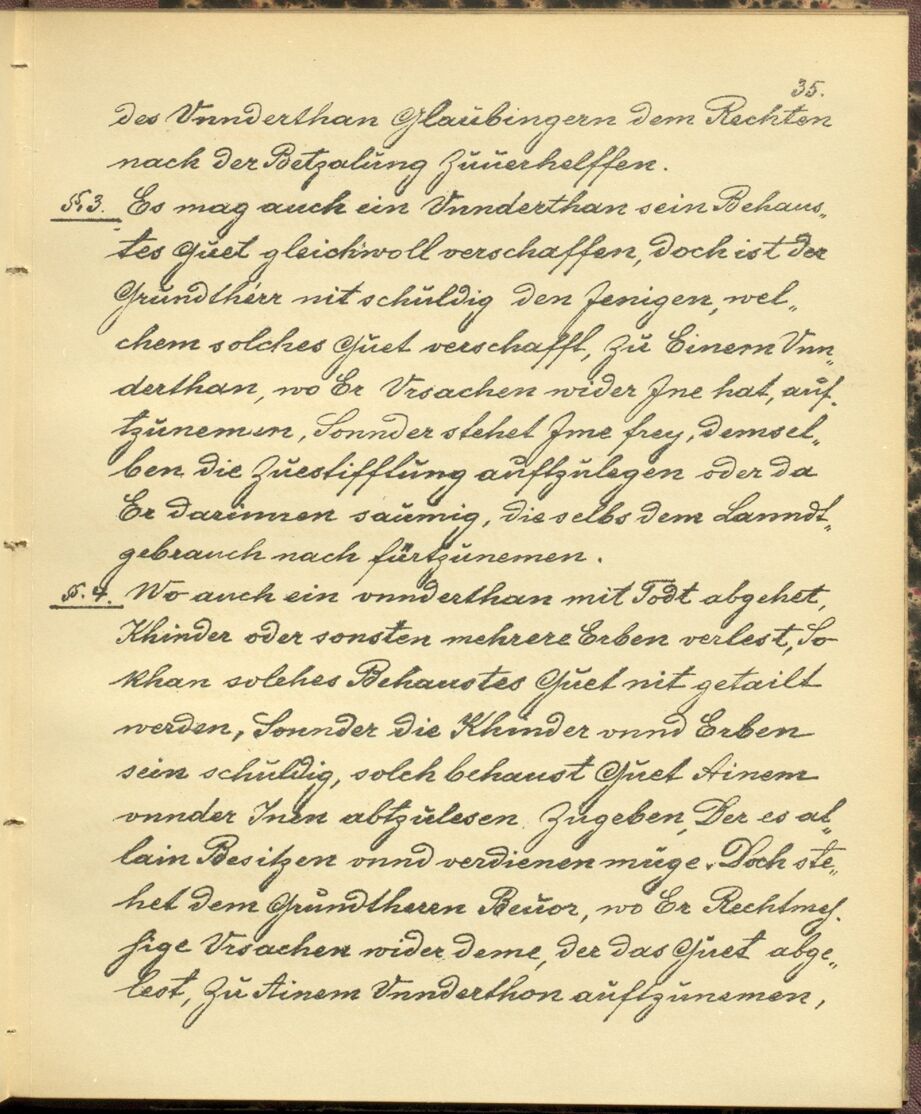 35.
des Vnnderthan Glaubingern dem Rechten
nach der Betzalung Zuuerhelffen.
§.3. Es mag auch ein Vnnderthan sein Behaus„
tes Guet gleichwoll verschaffen, doch ist der
Grundtherr nit schuldig den Jenigen, wel„
chem solches Guet verschafft, Zu Einem Vnn„
derthan, wo Er Vrsachen wider Jne hat, auf„
tzunemen, Sonnder stehet Jme frey, demsel„
ben die Zuestifftung auftzulegen oder da
Er darinnen saumig, die selbs dem Lanndt„
gebrauch nach fürtzunemen.
§.4. Wo auch ein vnnderthan mit Todt abgehet,
Khinder oder sonsten mehrere Erben verlest, So
khan solches Behaustes Guet nit getailt
werden, Sonnder die Khinder vnnd Erben
sein schuldig, solch behaust Guet Ainem
vnnder Inen abtzulesen Zugeben, Der es al„
lain Besitzen vnnd verdienen müge. Doch ste„
het dem Grundtherrn Beuor, wo Er Rechtmes„
sige Vrsachen wider deme, der das Guet abge„
lest, Zu Ainem Vnnderthon auftzunemen,